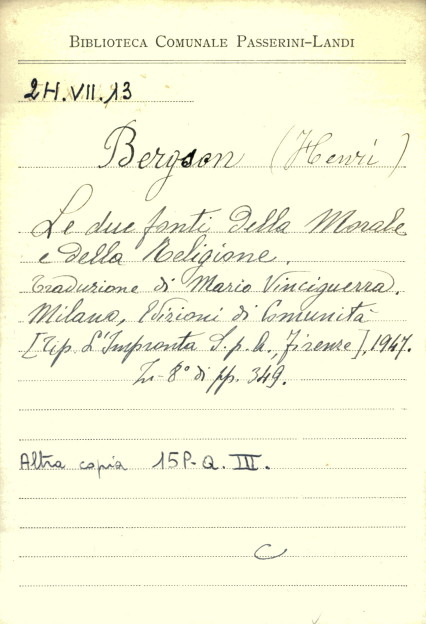 BIBLIOTECA COMUNALE PASSERINI-LANDI
2H.VII.13
Bergson (Henri)
Le due fonti della Morale
e della Religione.
Traduzione di Mario Vinciguerra.
Milano, Edizioni di Comunità
[Tip. L'Impronta S.p.A., Firenze], 1947.
In-8° di pp. 349.
Altra copia 15P-Q.III.
C